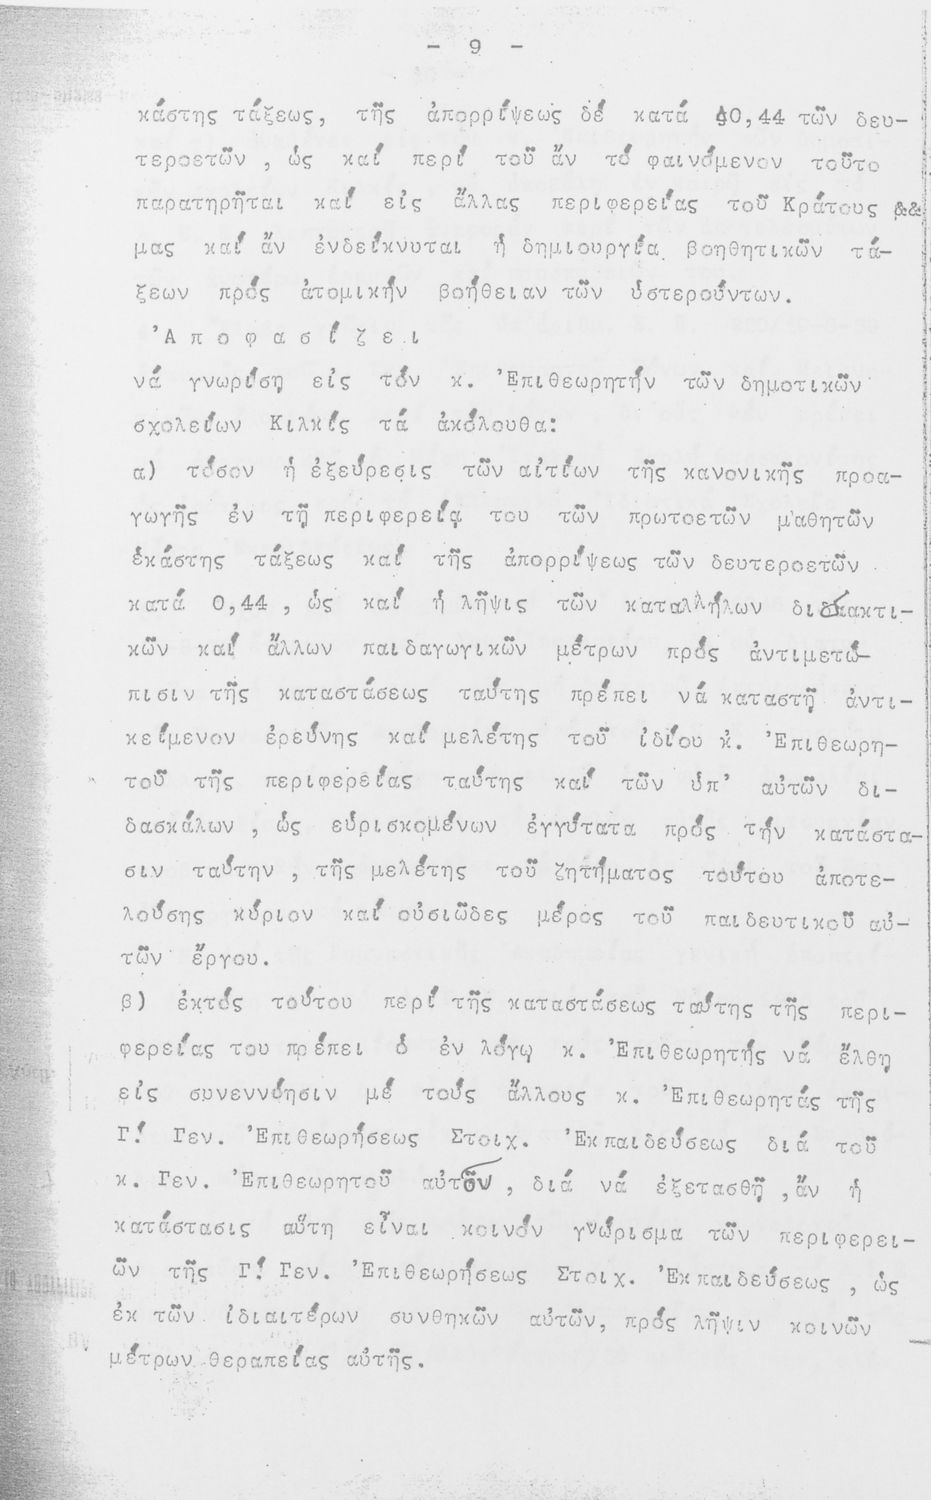 - 9 -
κάστης τάξεως, τῆς ἀπορρίψεως δέ κατά 40,44 τῶν δευ-
τεροετῶν , ὡς καί περί τοῦ ἄν τό φαινόμενον τοῦτο
παρατηρῆται καί εἰς ἄλλας περιφερείας τοῦ Κράτους &&
μας καί ἄν ἐνδείκνυται ἡ δημιουργία βοηθητικῶν τά-
ξεων πρός ἀτομικήν βοήθειαν τῶν ὑστερούντων.
Ἀ π ο φ α σ ί ζ ε ι
νά γνωρίσῃ εἰς τόν κ. Ἐπιθεωρητήν τῶν δημοτικῶν
σχολείων Κιλκίς τά ἀκόλουθα:
α) τόσον ἡ ἐξεύρεσις τῶν αἰτίων τῆς κανονικῆς προα-
γωγῆς ἐν τῇ περιφερείᾳ του τῶν πρωτοετῶν μαθητῶν
ἑκάστης τάξεως καί τῆς ἀπορρίψεως τῶν δευτεροετῶν
κατά 0,44 , ὡς καί ἡ λῆψις τῶν καταλλήλων διδακτι-
κῶν καί ἄλλων παιδαγωγικῶν μέτρων πρός ἀντιμετώ-
πισιν τῆς καταστάσεως ταύτης πρέπει νά καταστῇ ἀντι-
κείμενον ἐρεύνης καί μελέτης τοῦ ἰδίου κ. Ἐπιθεωρη-
τοῦ τῆς περιφερείας ταύτης καί τῶν ὑπ' αὐτῶν δι-
δασκάλων , ὡς εὑρισκομένων ἐγγύτατα πρός τήν κατάστα-
σιν ταύτην , τῆς μελέτης τοῦ ζητήματος τούτου ἀποτε-
λούσης κύριον καί οὐσιῶδες μέρος τοῦ παιδευτικοῦ αὐ-
τῶν ἔργου.
β) ἐκτός τούτου περί τῆς καταστάσεως ταύτης τῆς περι-
φερείας του πρέπει ὁ ἐν λόγῳ κ. Ἐπιθεωρητής νά ἔλθῃ
εἰς συνεννόησιν μέ τούς ἄλλους κ. Ἐπιθεωρητάς τῆς
Γ! Γεν. Ἐπιθεωρήσεως Στοιχ. Ἐκπαιδεύσεως διά τοῦ
κ. Γεν. Ἐπιθεωρητοῦ αὐτῶν , διά νά ἐξετασθῇ , ἄν ἡ
κατάστασις αὕτη εἶναι κοινόν γνώρισμα τῶν περιφερει-
ῶν τῆς Γ! Γεν. Ἐπιθεωρήσεως Στοιχ. Ἐκπαιδεύσεως , ὡς
ἐκ τῶν ἰδιαιτέρων συνθηκῶν αὐτῶν, πρός λῆψιν κοινῶν
μέτρων θεραπείας αὐτῆς.